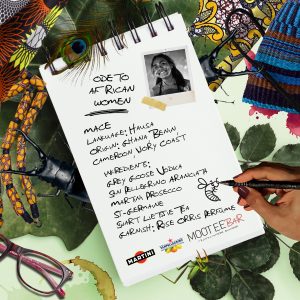 ODE TO
AFRICAN
WOMEN
MACE
LANGUAGE: HAUSA
ORIGIN: GHANA BENIN
CAMEROON, IVORY COAST
INGREDIENTS:
GREY GOOSE VODKA
SAN PELLEGRINO ARANCIATA
MARTINI PROSECCO
ST-GERMAINE
TEA
GARNISH: ROSE ORRIS PERFUME
MARTINI
MOOTEEBAR